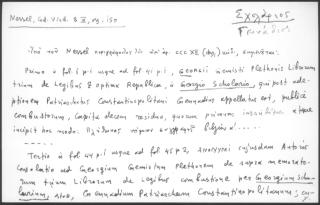 Nessel, Cod. Vind. 8 II, pg. 150
Σχολάριος
Γεννάδιος
Ὑπὸ τοῦ Nessel
Primo a fol. 1 p. 1 usque ad fol. 41 p. 1, Georgii Gemisti Plethonis Librorum
trium de Legibus & optima Republica, à Georgio Scholario, qui post ade-
ptionem Patriarchatus Constantinopolitani Gennadius appellatus est, publicè
combustorum, capita decem residua, quorum primum
incipit hoc modo. Πλήθωνος νόμων συγγραφῆς βιβλίον α'
Tertio à fol. 44 p. 1 usque ad fol. 45 p. 2, anonymi cujusdam Autoris
Consolatio ad Georgium Gemistum Plethonem de supra memorato-
rum trium Librorum de Legibus combustione per Georgium Scho-
larium, sive, Gennadium Patriarcham Constantinopolitanum;